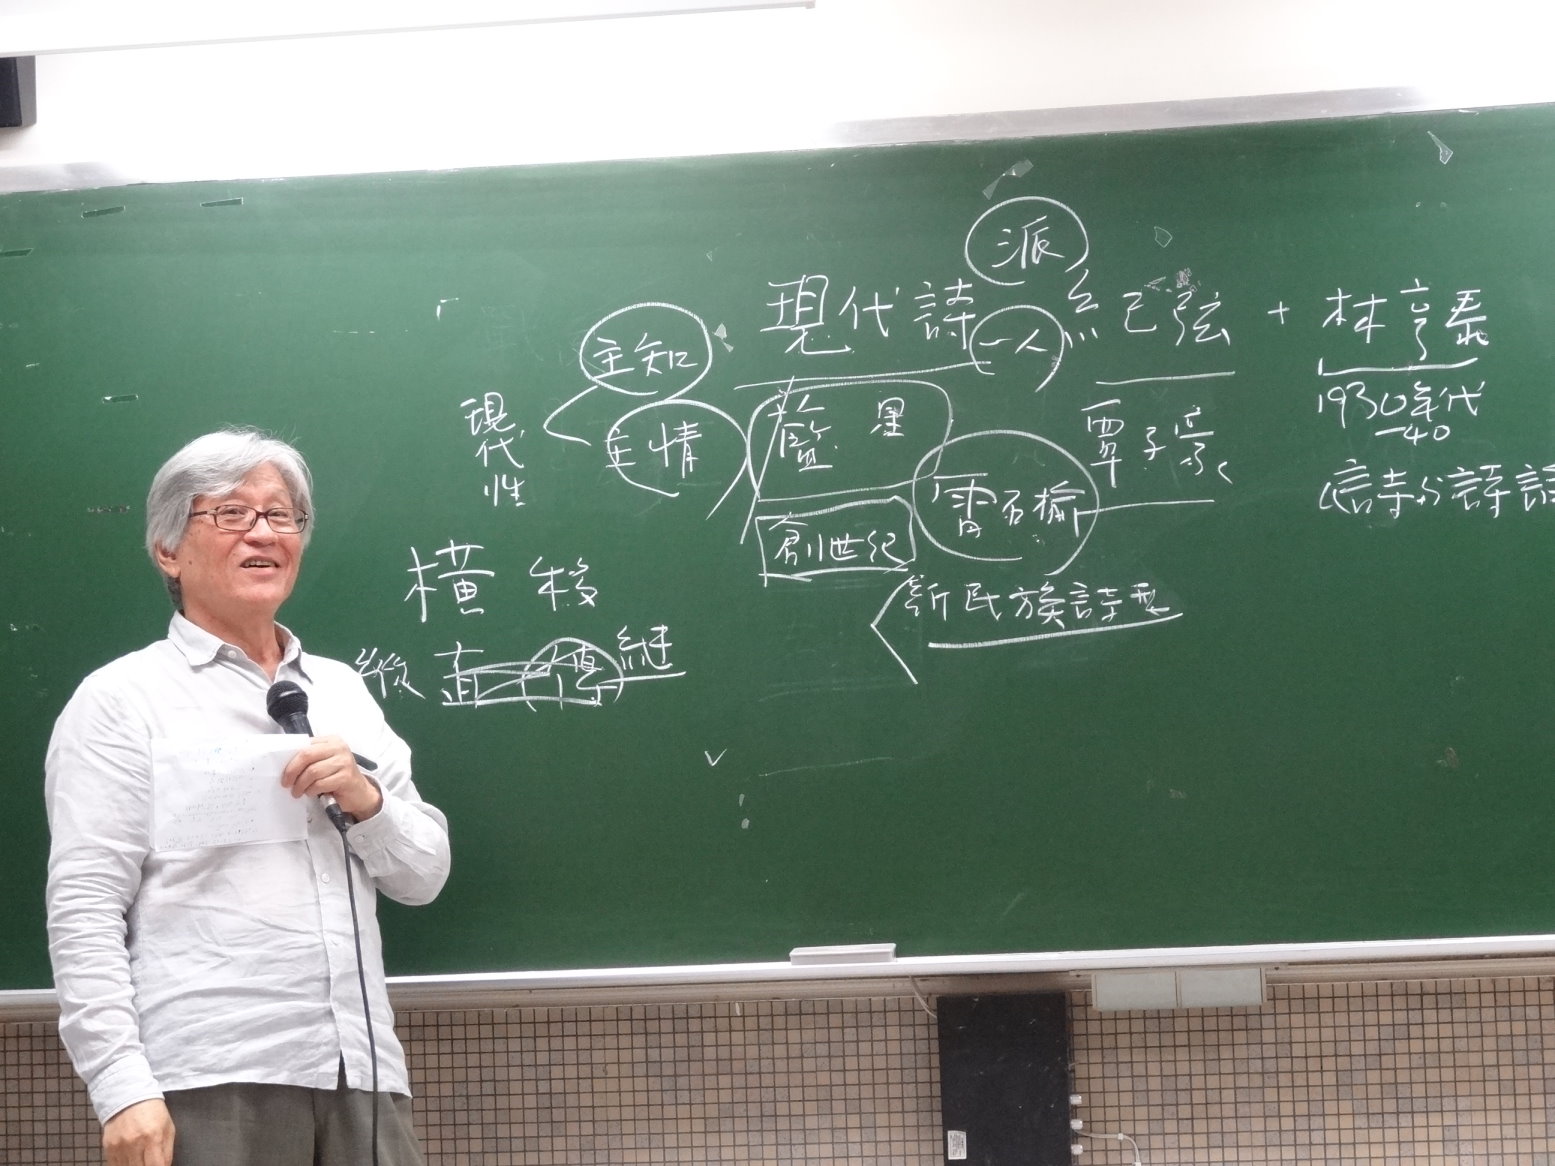 派
現代詩 一人 紀弦 + 林亨泰
主知
現代性
主情
藍星
覃子豪
1930年代
-40
雷石榆
詩與詩論
創世紀
新民族詩型
橫移
縱 直 傳 繼